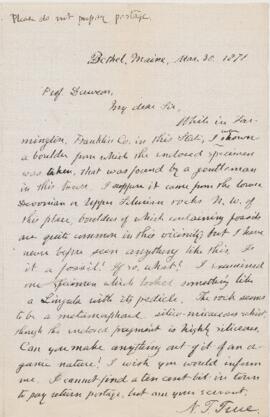 Please do not prepay postage.
Bethel, Maine, Mar. 30. 1871
Prof. Dawson,
My dear Sir,
While in Far-
mington, Franklin Co. in this State, I was shown
a boulder from which the enclosed specimen
was taken, that was found by a gentleman
in this town. I suppose it came from the lower
Devonian or Upper Silurian rocks N. W. of
this place, boulders of which containing fossils
are quite common in this vicinity; but I have
never before seen anything like this. Is
it a fossil? If so, what? I examined
one specimen which looked something like
a Lingula with its pedicle. The rock seems
to be a metamorphosed silico-micaceous rock
though the enclosed fragment is highly siliceous.
Can you make anything out of it of an or-
ganic nature? I wish you would inform
me. I cannot find a ten cent bit in town
to pay return postage, but am your servant,
N. T. True